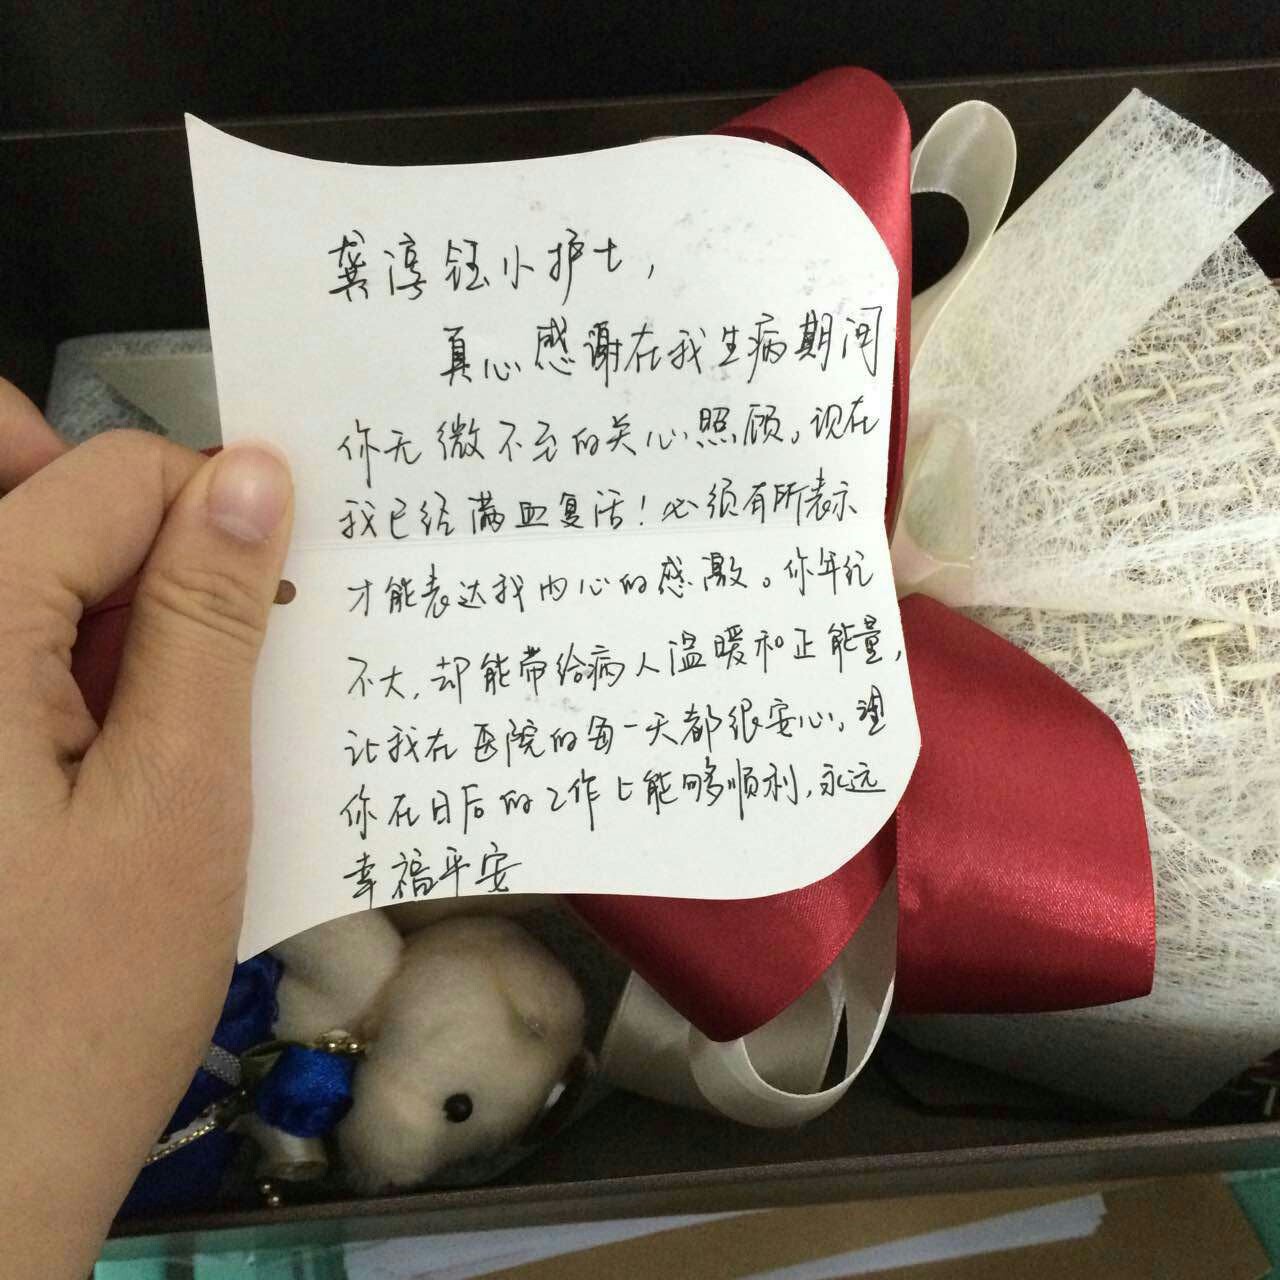 龚淳钰小护士,
真心感谢在我生病期间
你无微不至的关心照顾。现在
我已经满血复活!必须有所表示
才能表达我内心的感激。你年纪
不大,却能带给病人温暖和正能量,
让我在医院的每一天都很安心。望
你在日后的工作上能够顺利,永远
幸福平安